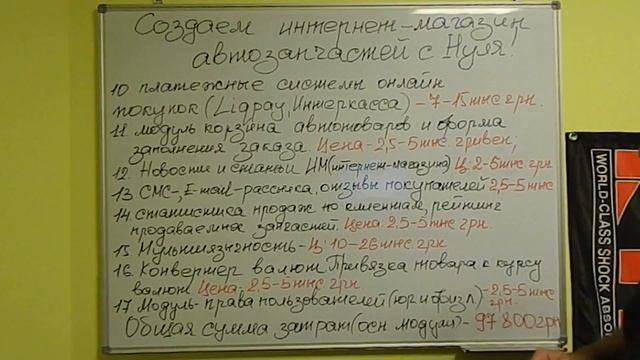 Создаем интернет-магазин
автозапчастей с Нуля!
10 платежные системы онлайн
покупок (Liqpay, Интеркасса) - 7-15тыс грн.
11. модуль корзина автотоваров и форма
заполнения заказа. Цена - 2,5-5тыс. гривен,
12. Новости и статьи ИМ (интернет-магазина) Ц: 2-5тыс грн
13 СМС-, E-mail-рассылка, отзывы покупателей 2,5-5тыс
14. статистика продаж по клиентам, рейтинг
продаваемых запчастей. Цена 2,5-5тыс грн.
15 Мультиязычность - Ц: 10-26тыс грн
16. Конвертер валют. Привязка товара к курсу
валют Цена; 2,5-5тыс грн
17. Модуль-права пользователей (юр и физ л) - 2,5-5тыс
грн.
Общая сумма затрат (осн модули) - 97800грн
WORLD-CLASS SHOCK ABSO